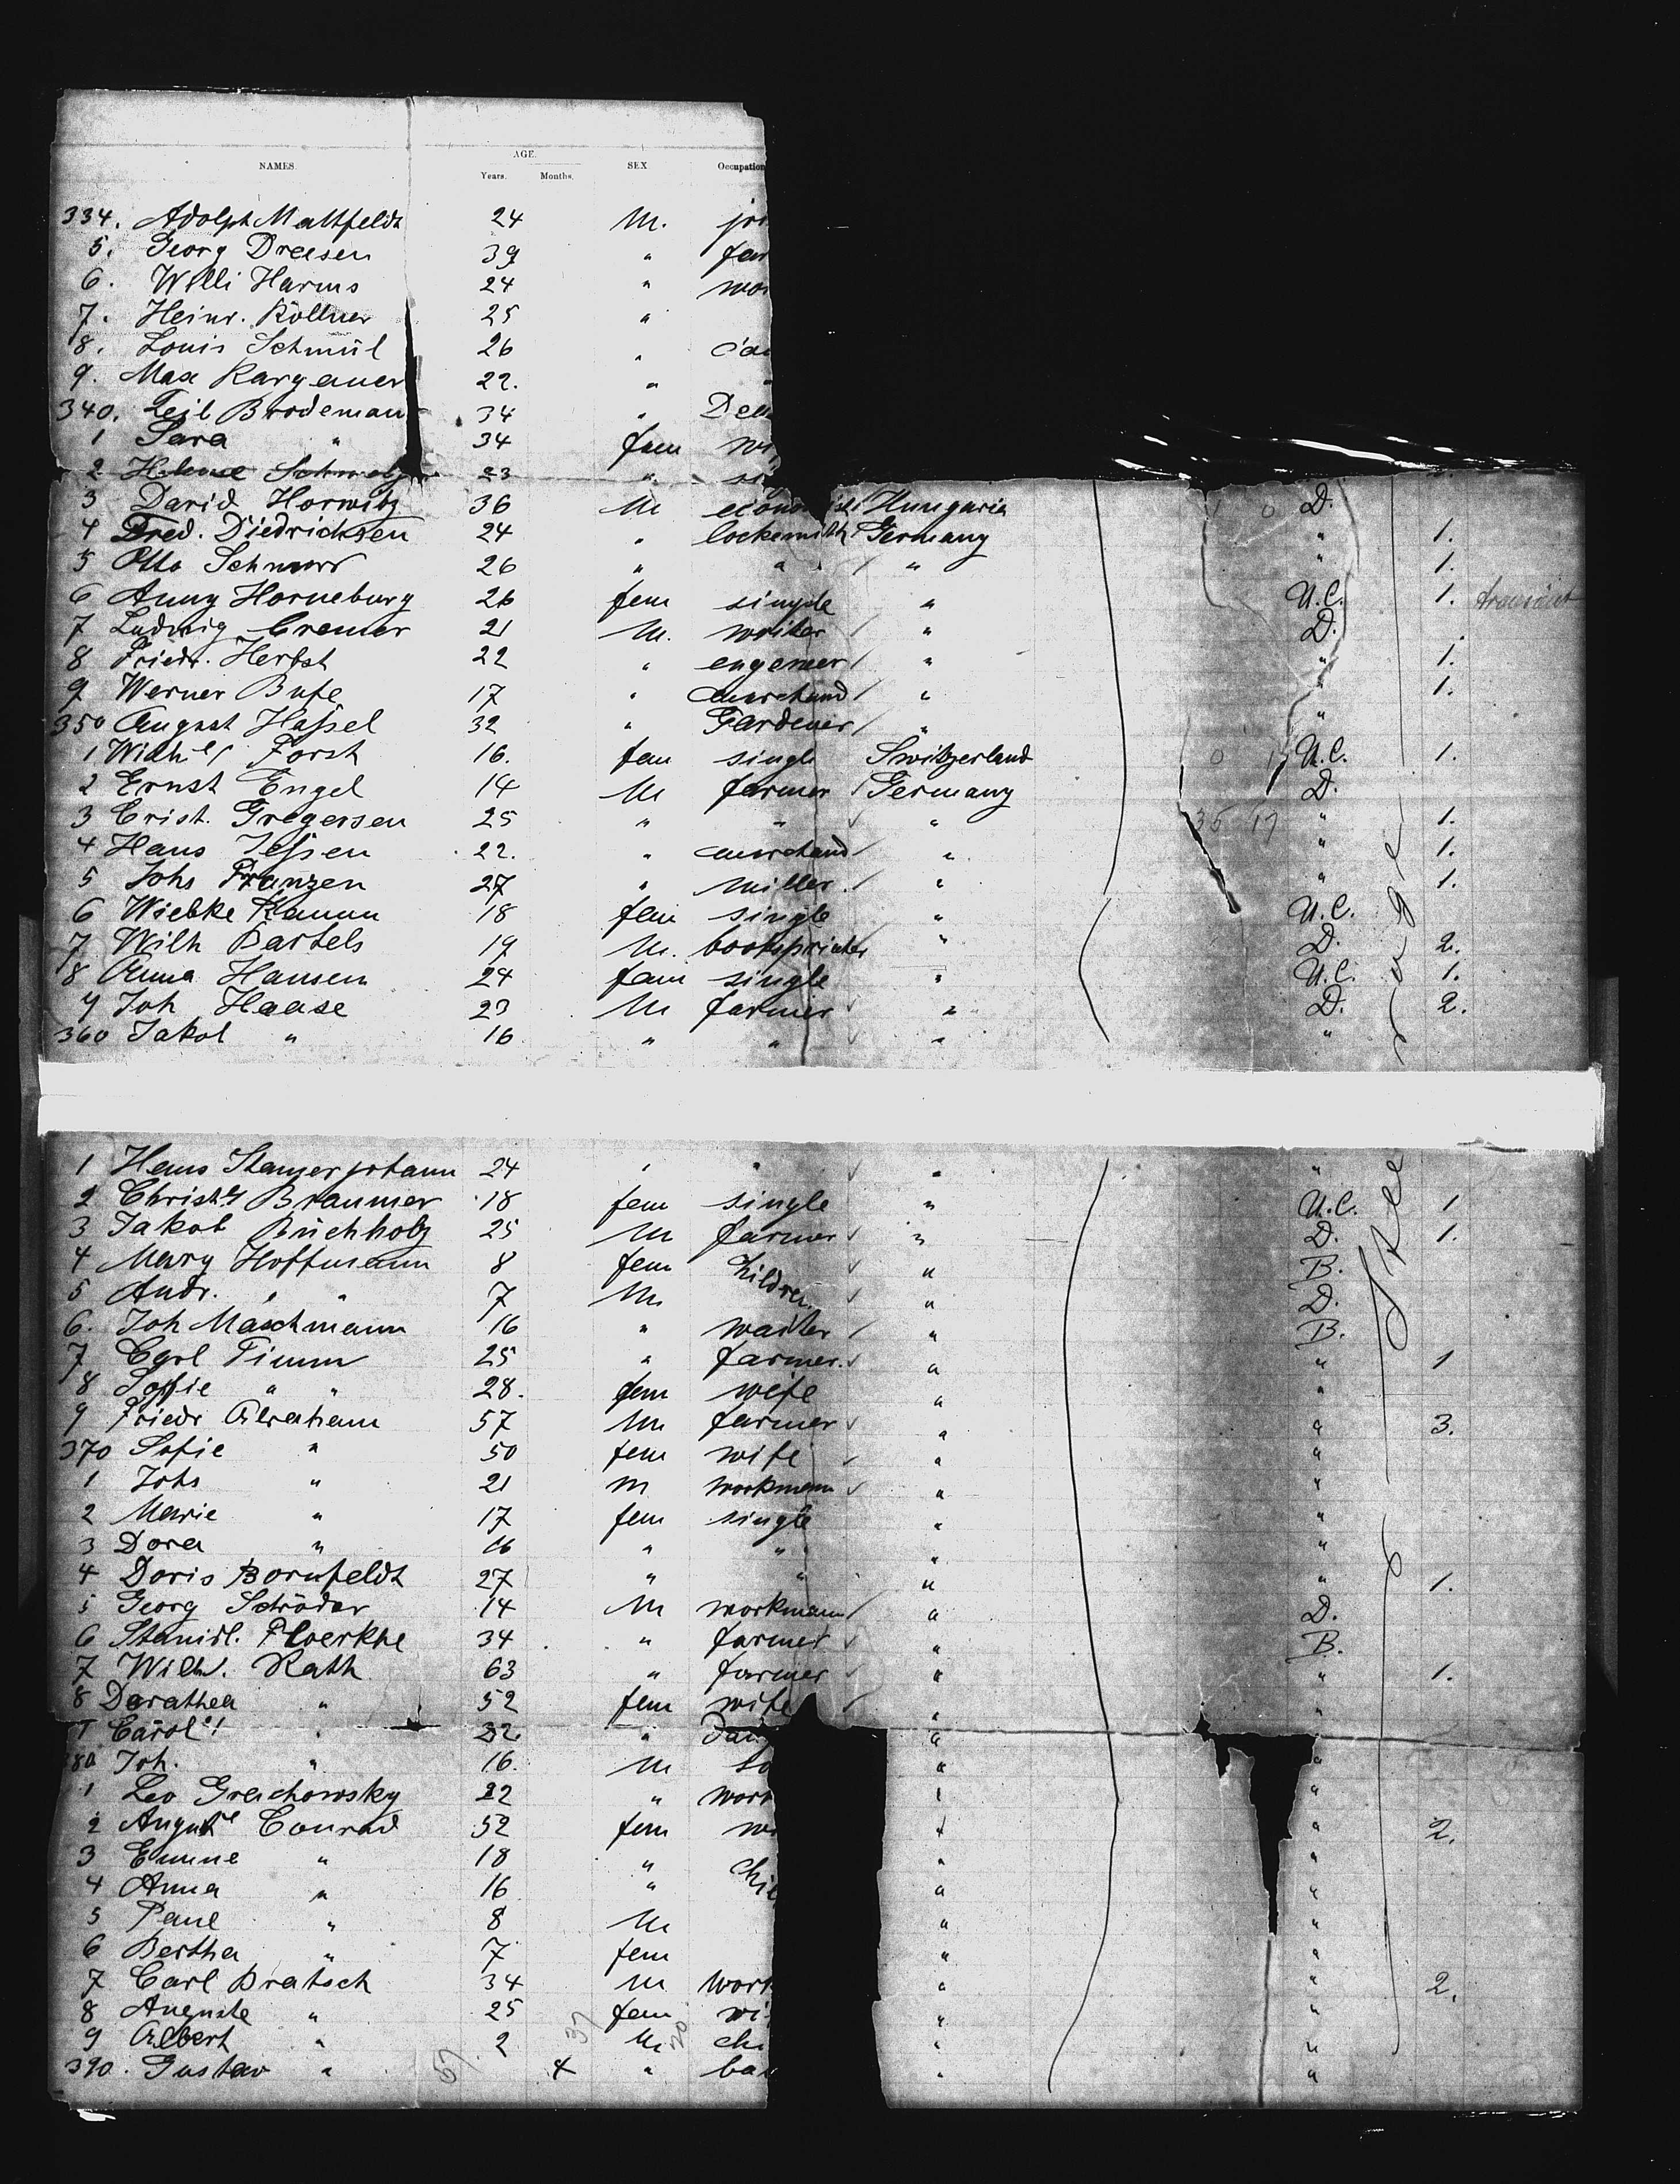 NAMES. AGE. Years. Months. SEX Occupation
334. Adolph Mattfeldt 24 M.
5. Georg Dreesen 39 "
6. Willi Harms 24 "
7. Heinr. Köllner 25 "
8. Louis Schmül 26 "
9. Max Kargauer 22. "
340. Feil Brodeman 34 "
1 Sara " 34 fem
2 Helene 23 "
3 David Horwitz 36 M Hungaria D.
4 Fred. Diedrichsen 24 " locksmith Germany " 1.
5 Otto Schnoor 26 " " " " 1.
6 Anny Horneburg 26 fem single " U.C. 1.
7 Ludwig Cremer 21 M. writer " D.
8 Friedr. Herbst 22 " engeneer " " 1.
9 Werner Bufe 17 " marchand " " 1.
350 August Hassel 32 " Gardener " "
1 Wilh. Forst 16. fem single Switzerland U.C. 1.
2 Ernst Engel 14 M farmer Germany D.
3 Crist. Gregersen 25 " " " 35 17 " 1.
4 Hans Jessen 22. " marchand " " 1.
5 Johs Franzen 27 " miller. " " 1.
6 Wiebke Kamm 18 fem single " U.C.
7 Wilh Bartels 19 M. booksprinter " D. 2.
8 Anna Hansen 24 fem single " U.C. 1.
9 Joh Haase 23 M farmer " D. 2.
360 Jakob " 16 " " " "
1 Hans Stamerjohann 24 " " " "
2 Christ. Brammer 18 fem single " U.C. 1
3 Jakob Buchholz 25 M farmer " D. 1.
4 Mary Hoffmann 8 fem children " B.
5 Andr. " " 7 M. " D.
6. Joh Maschmann 16 " waiter " B.
7 Carl Timm 25 " farmer. " " 1
8 Soffie " " 28. fem wife " "
9 Friedr Abraham 57 M farmer " " 3.
370 Sofie " 50 fem wife " "
1 Johs " 21 m workmann " "
2 Marie " 17 fem single " "
3 Dora " 16 " " " "
4 Doris Bornfeldt 27 " " " " 1.
5 Georg Schröder 14 M workmann " D.
6 Stanisl. Ploerkhe 34 " farmer " B.
7 Wilh. Rath 63 " farmer " " 1.
8 Darathea " 52 fem wife " "
Carol. " 32 " "
380 Joh. " 16. M " "
1 Leo Grechowsky 22 " "
2 Auguste Conrad 52 fem " 2.
3 Emme " 18 " " "
4 Anna " 16 " " "
5 Paul " 8 M " "
6 Bertha " 7 fem " "
7 Carl Bratsch 34 M " " 2.
8 Auguste " 25 fem " "
9 Albert " 2 M " "
390. Gustav " 4 " " "